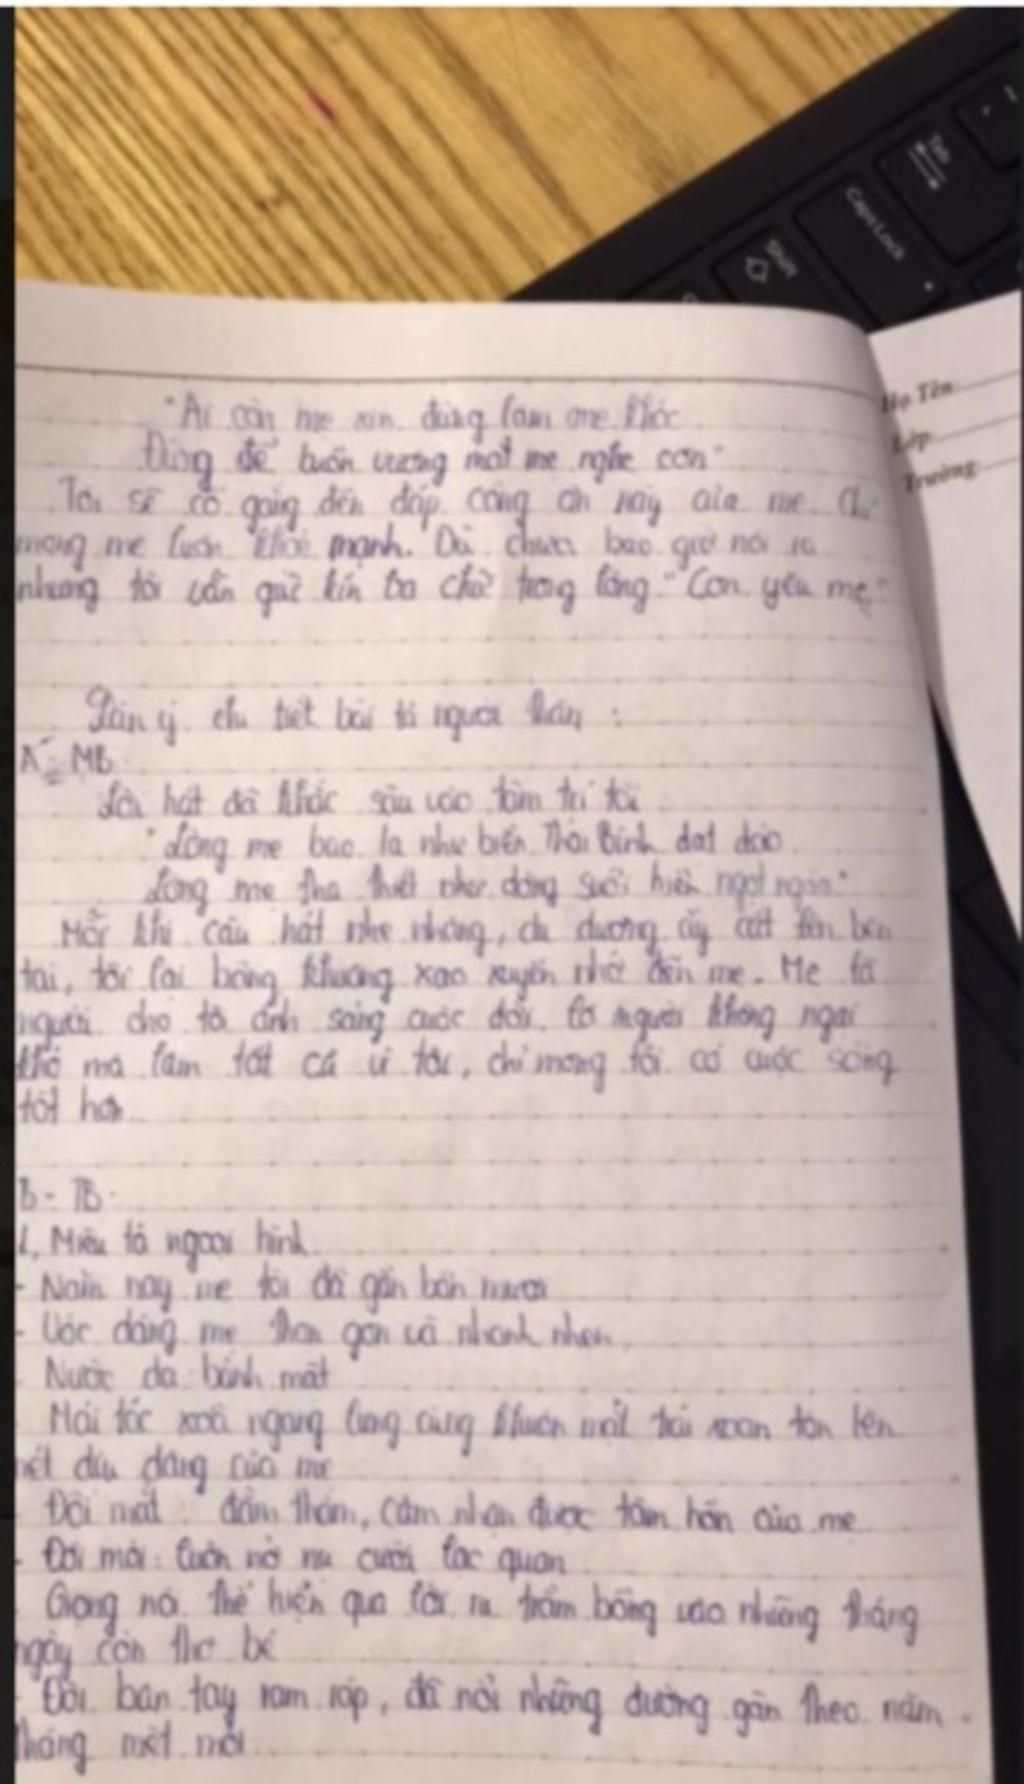 "Ai còn mẹ xin đừng làm mẹ khóc
Đừng để buồn vương mắt mẹ nghe con"
Tôi sẽ cố gắng đền đáp công ơn này của mẹ. Chỉ
mong mẹ luôn khoẻ mạnh. Dù chưa bao giờ nói ra
nhưng tôi vẫn giữ kín ba chữ trong lòng "Con yêu mẹ"
Dàn ý chi tiết bài tả người thân :
A - MB
Lời hát đã khắc sâu vào tâm trí tôi
"Lòng mẹ bao la như biển Thái Bình dạt dào
Lòng mẹ tha thiết như dòng suối hiền ngọt ngào"
Mỗi khi câu hát nhẹ nhàng, du dương ấy cất lên bên
tai, tôi lại bâng khuâng xao xuyến nhớ đến mẹ. Mẹ là
người cho tôi ánh sáng cuộc đời, là người không ngại
khó mà làm tất cả vì tôi, chỉ mong tôi có cuộc sống
tốt hơn
B - TB
1, Miêu tả ngoại hình
- Năm nay mẹ tôi đã gần bốn mươi
- Vóc dáng mẹ thon gọn và nhanh nhẹn
- Nước da bánh mật
- Mái tóc xoã ngang lưng cùng khuôn mặt trái xoan tôn lên
nét dịu dàng của mẹ
- Đôi mắt : đằm thắm, cảm nhận được tâm hồn của mẹ
- Đôi môi : luôn nở nụ cười lạc quan
- Giọng nói thể hiện qua lời ru trầm bổng vào những tháng
ngày còn thơ bé
- Đôi bàn tay ram ráp, đã nổi những đường gân theo năm
tháng mệt mỏi
Họ Tên:
Lớp
Trường
Tab
Caps Lock
Shift